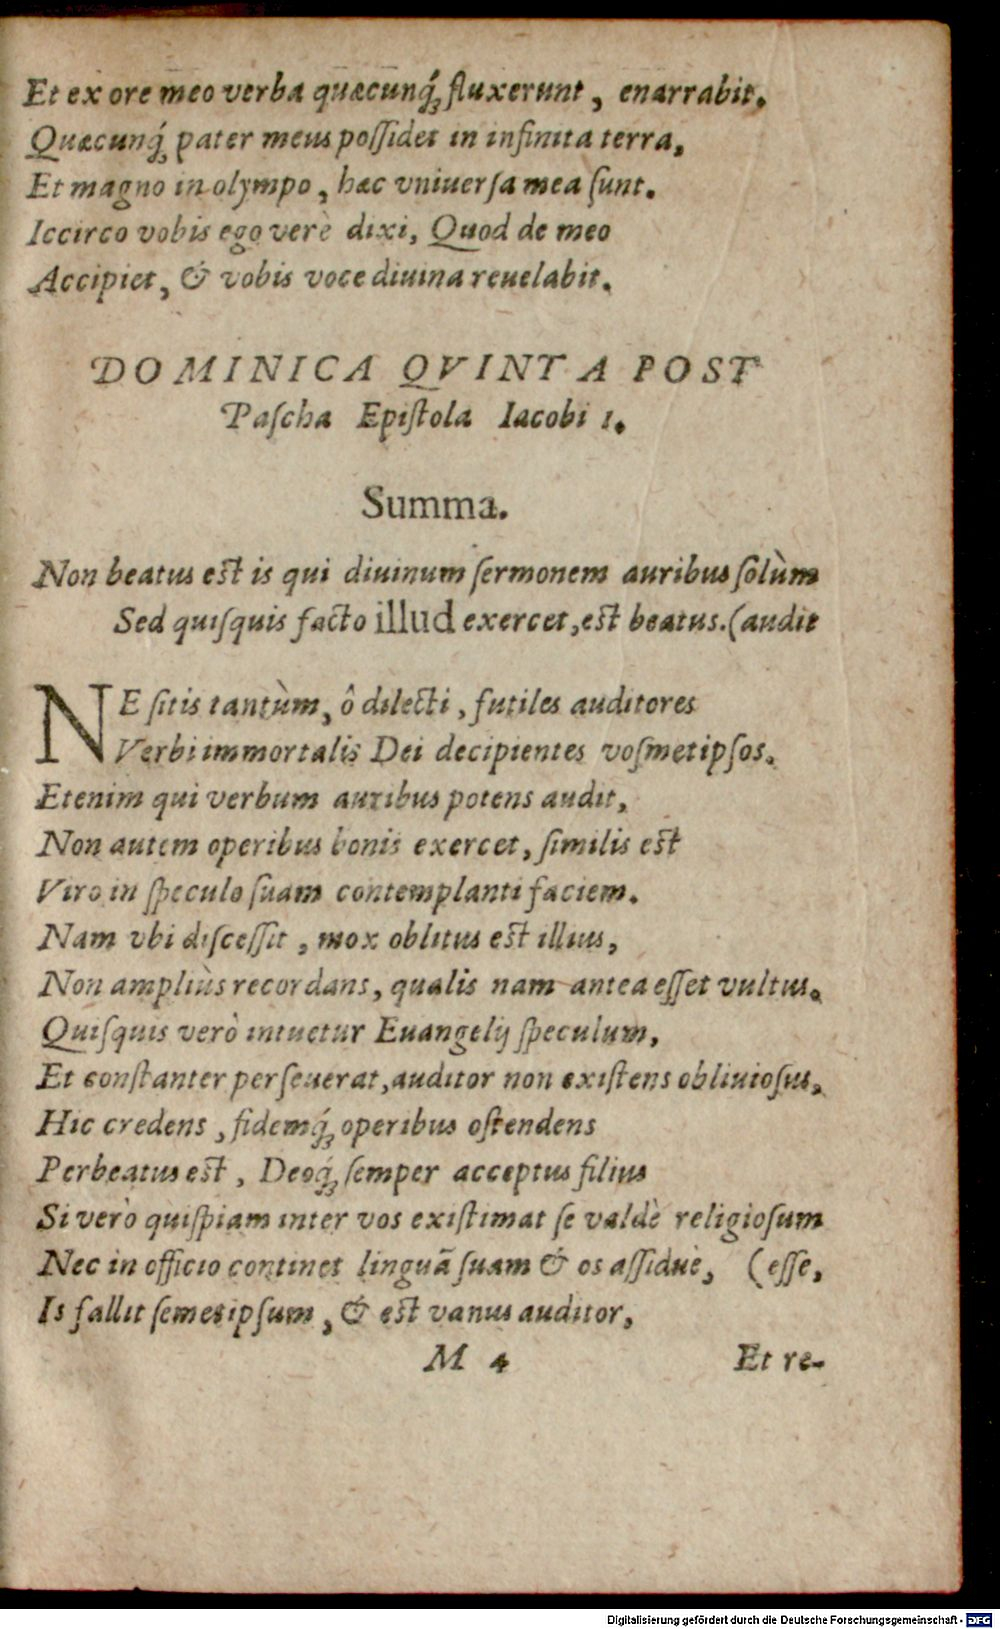 Et ex ore meo verba quæcunq́ꝫ fluxerunt, enarrabit.
Quæcunq́ꝫ pater meus poſſidet in infinita terra,
Et magno in olympo, hæc vniuerſa mea ſunt.
Iccirco vobis ego verè dixi, Quod de meo
Accipiet, & vobis voce diuina reuelabit.
DOMINICA QVINTA POST
Paſcha Epiſtola Iacobi 1.
Summa.
Non beatus eſt is qui diuinum ſermonem auribus ſolùm
Sed quiſquis facto illud exercet, eſt beatus. (audit
NE ſitis tantùm, ô dilecti, futiles auditores
Verbi immortalis Dei decipientes voſmetipſos.
Etenim qui verbum auribus potens audit,
Non autem operibus bonis exercet, ſimilis eſt
Viro in ſpeculo ſuam contemplanti faciem.
Nam vbi diſceſſit, mox oblitus eſt illius,
Non ampliùs recordans, qualis nam antea eſſet vultus.
Quiſquis verò intuetur Euangelij ſpeculum,
Et conſtanter perſeuerat, auditor non exiſtens obliuioſus,
Hic credens, fidemq́ꝫ operibus oſtendens
Perbeatus eſt, Deoq́ꝫ ſemper acceptus filius
Si verò quiſpiam inter vos exiſtimat ſe valdè religioſum
Nec in officio continet linguã ſuam & os aſſiduè, (eſſe,
Is fallit ſemetipſum, & eſt vanus auditor,
M 4 Et re-
Digitalisierung gefördert durch die Deutsche Forschungsgemeinschaft - DFG